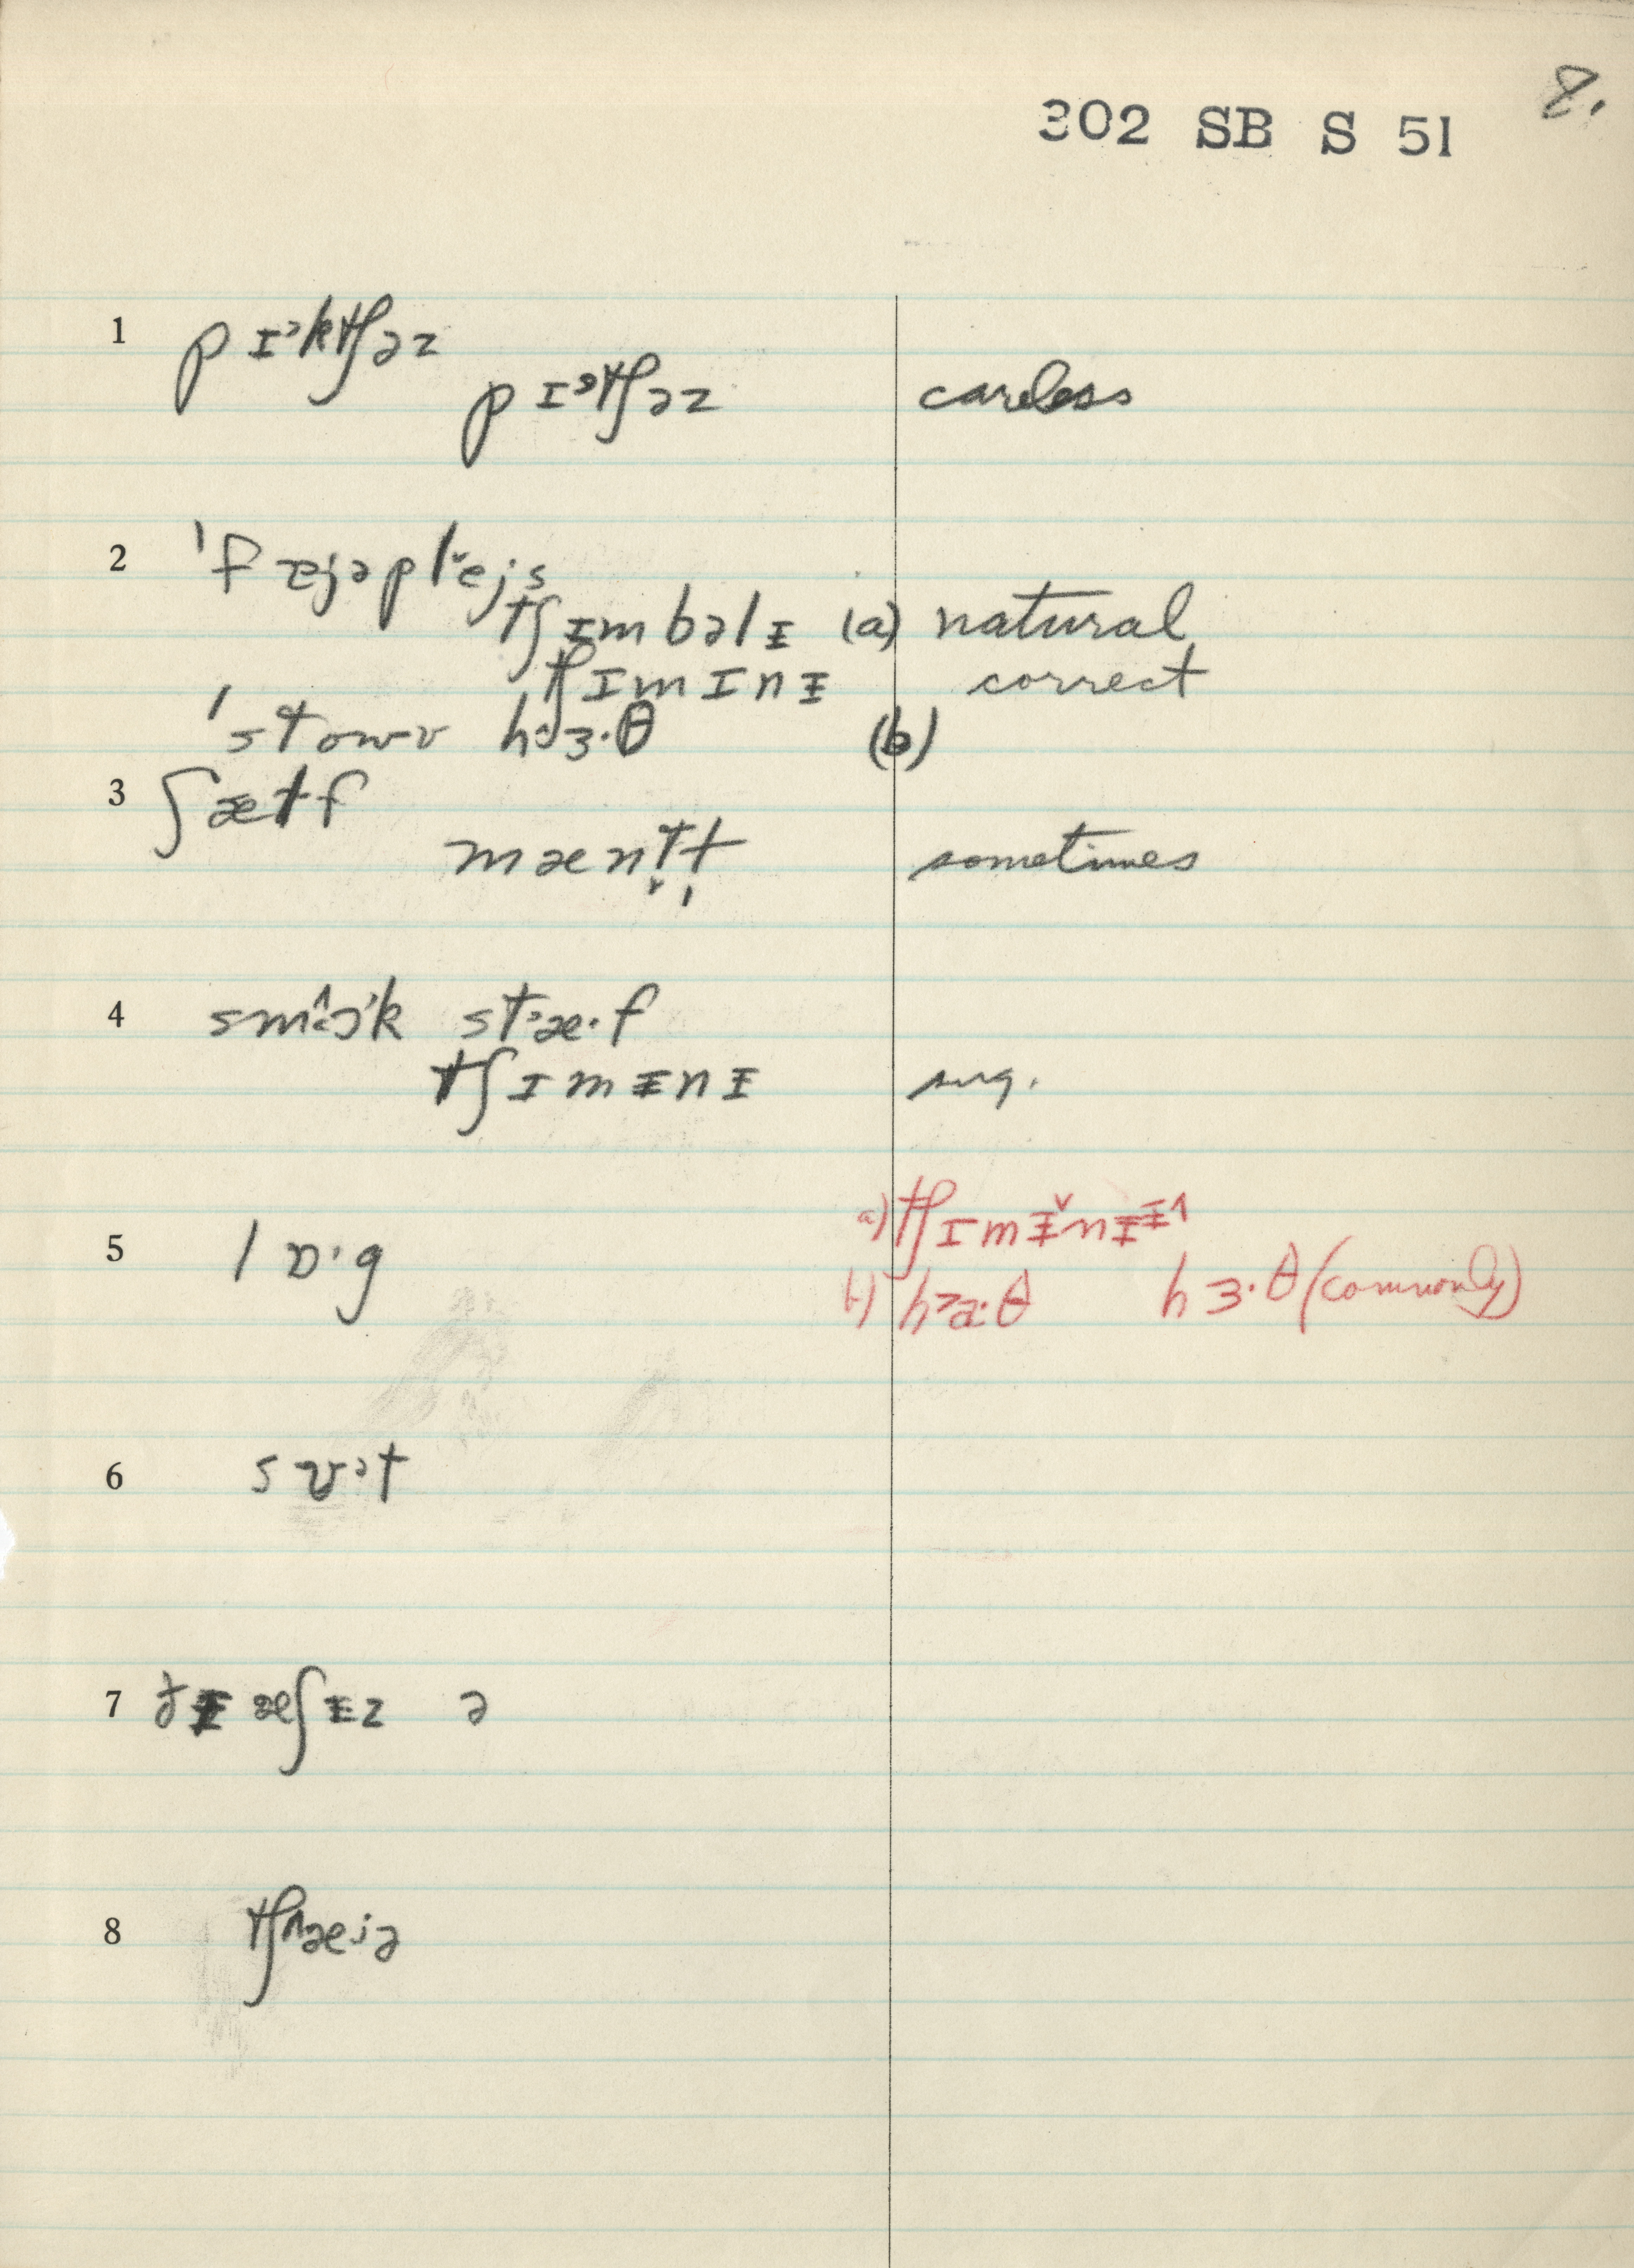 8.
302 SB S 51
1 pɪᵊktʃəz
pɪᵊtʃəz careless
2 ˈfæjəplˇejs
tʃɪmbəlᵻ (a) natural
tʃɪmɪnᵻ correct
ˈstowv hɜ·θ (b)
3 ʃætf
mæntt sometimes
4 smɔ^k stᵊæ·f
tʃɪmᵻnᵻ sug.
5 lɒ·g a) tʃɪmᵻˇnᵻᵻ^
b) h>a·θ hɜ·θ (commonly)
6 sʊᵊt
7 ðᵻ æʃᵻz ə
8 tʃ^æjə